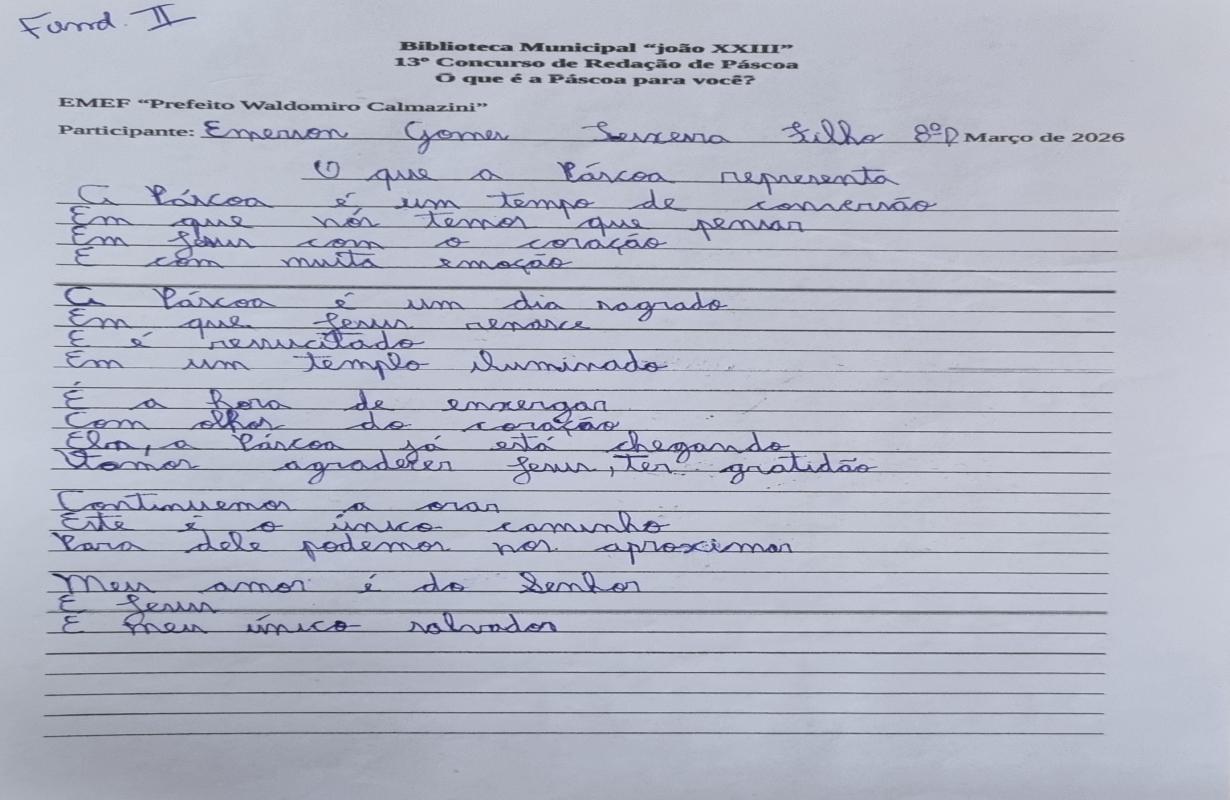 Fund. II
Biblioteca Municipal “joão XXIII”
13º Concurso de Redação de Páscoa
O que é a Páscoa para você?
EMEF “Prefeito Waldomiro Calmazini”
Participante: Emerson Gomes Teixeira Filho 8ºD Março de 2026
O que a Páscoa representa
A Páscoa é um tempo de conversão
Em que nós temos que pensar
Em Jesus com o coração
E com muita emoção
A Páscoa é um dia sagrado
Em que Jesus renasce
E é ressucitado
Em um templo iluminado
É a hora de enxergar
Com olhos do coração
Eba, a Páscoa já está chegando
Vamos agradecer Jesus, ter gratidão
Continuemos a orar
Este é o único caminho
Para dele podemos nos aproximar
Meu amor é do Senhor
E Jesus
E meu único salvador